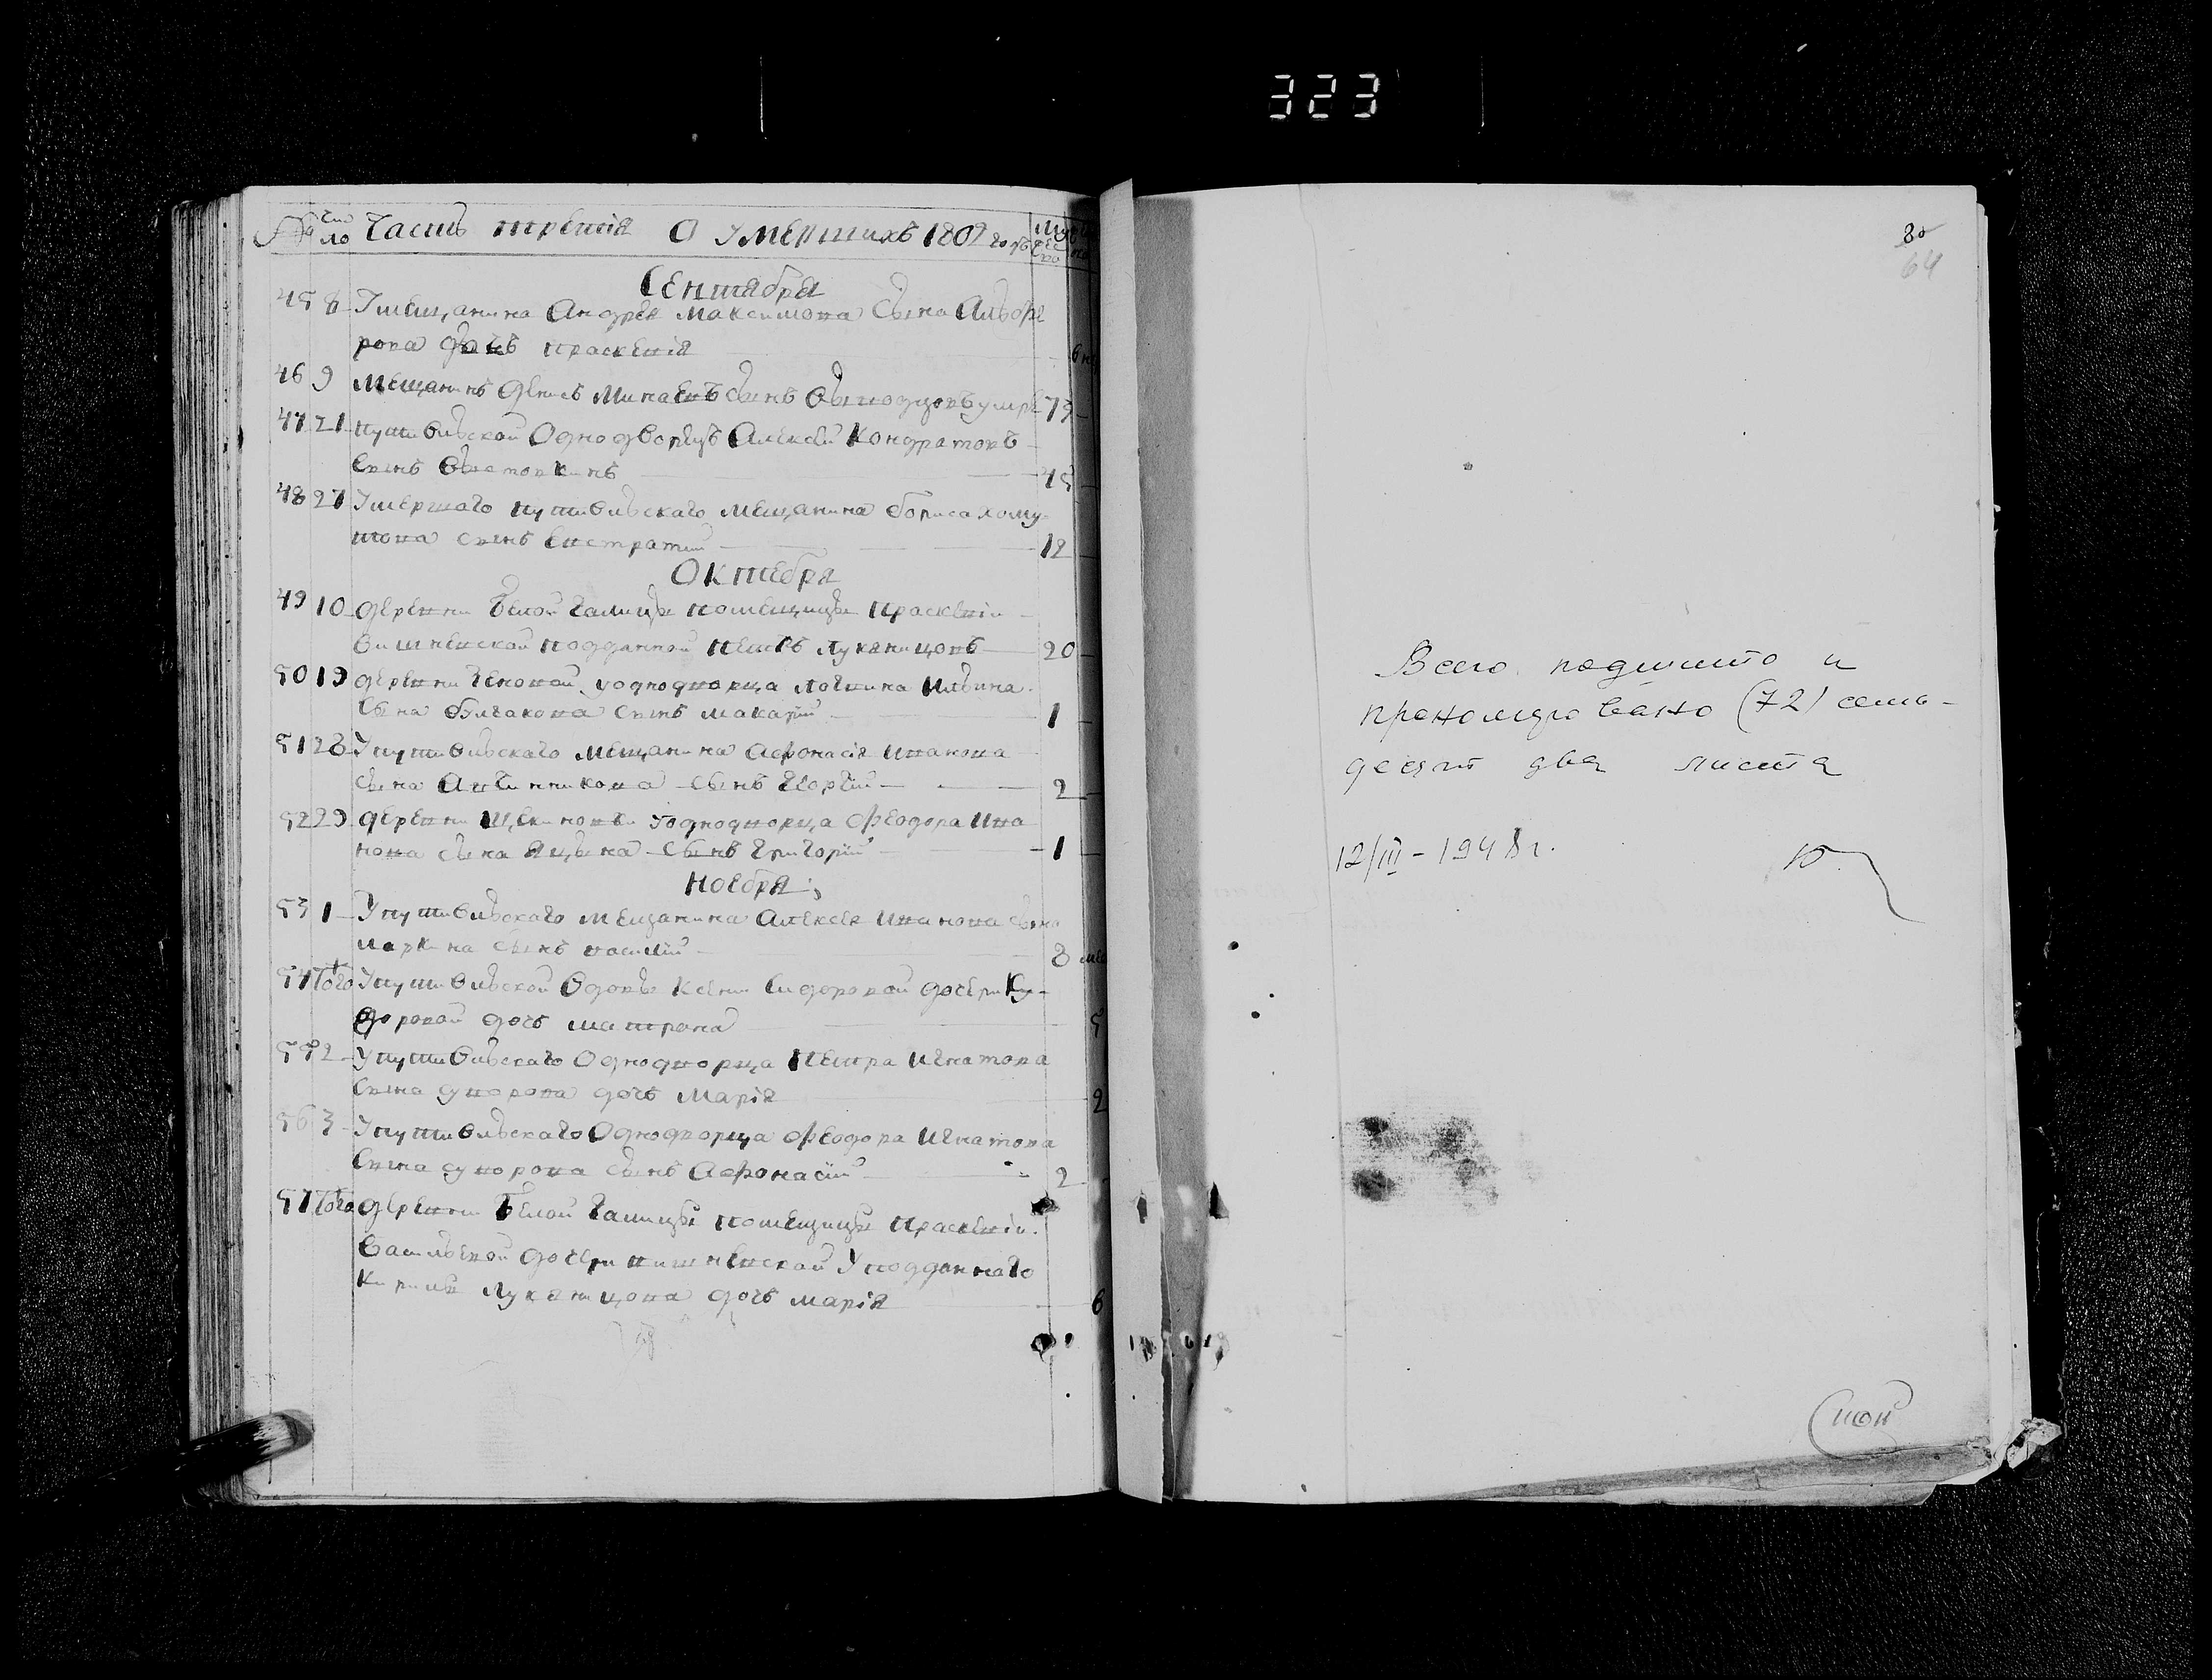 323
№ Чи
сло Часть третія О Умершихъ 1802 годѣ
Сентября
45 8 Умещанина Андрея Максимова сына
дочь Праскевія
46 9 Мещанинъ Денисъ сынъ умре 73
47 21 путивльской Однодворецъ Алексей Кондратовъ
сынъ 45
48 27 Умершаго путивльскаго мещанина Бориса Хому
това сынъ Евстратий 12
Октября
49 10 деревни Белой Галицы помещицы Праскевіи
Вишневской подданной Лукянцовъ 20
50 19 деревни уоднодворца Логвина Ильина
сына Булгакова сынъ Макарий 1
51 28 Упутивльскаго мещанина Афонасія Иванова
сына сынъ Георгий 2
52 29 деревни уоднодворца Феодора Ива
нова сына Яцына сынъ Григорий 1
Ноября
53 1 Упутивльскаго мещанина Алексея Иванова сына
Маркина сынъ Василий 8
54 Того Упутивльской вдовы Ксении Сидоровой дочери
дочь Матрона 5
55 2 Упутивльскаго Однодворца Петра Игнатова
сына Суворова дочь Марія 2
56 3 Упутивльскаго Однодворца Феодора Игнатова
сына Суворова сынъ Афонасий 2
57 Того деревни Белой Галицы помещицы Праскевіи
Васильевой дочери Вишневской Уподданнаго
Кирилы Лукянцова дочь Марія 6
80
64
Всего подшито и
прономеровано (72) семь-
десят два листа
12/III-1948 г.